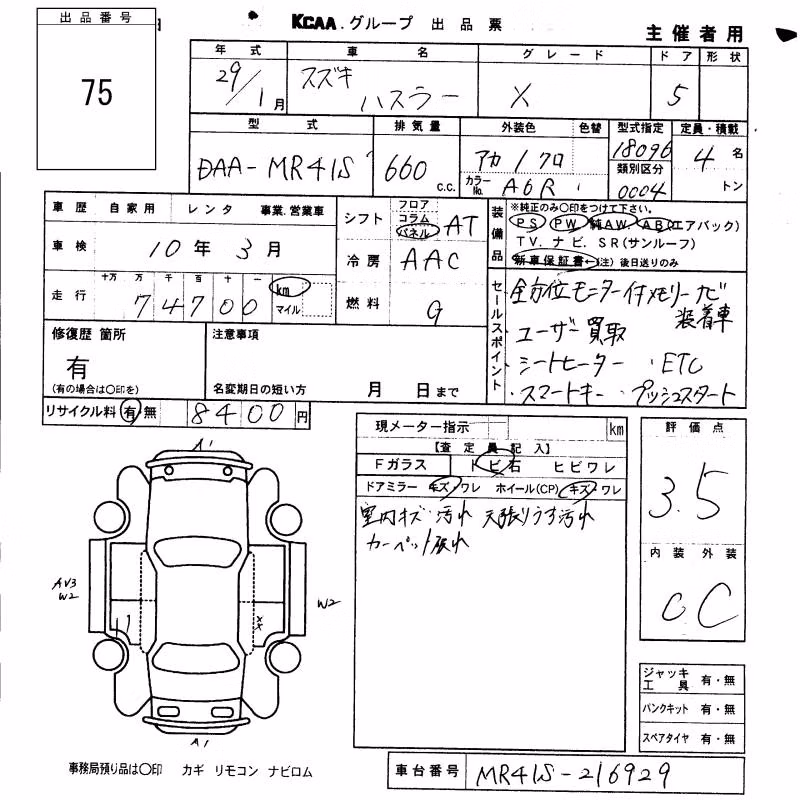 出品番号
75
KCAA.グループ 出品票
主催者用
年式 車名 グレード ドア 形状
29/1月 スズキ ハスラー X 5
型式 排気量 外装色 色替 型式指定 定員・積載
DAA-MR41S 660 c.c. アカ/クロ 18096 4名
カラーNo. A6R 類別区分 0004 トン
車歴 自家用 レンタ 事業.営業車
車検 10年3月
十万 万 千 百 十 一
走行 74700 km マイル
シフト フロア コラム パネル AT
冷房 AAC
燃料 g
装備品 ※純正のみ〇印をつけて下さい。
PS PW 純AW. AB(エアバック)
TV. ナビ. SR(サンルーフ)
新車保証書 (注)後日送りのみ
セールスポイント
全方位モニター付メモリーナビ
装着車
ユーザー買取
シートヒーター・ETC
・スマートキー・プッシュスタート
修復歴 箇所
有
(有の場合は〇印を)
注意事項
名変期日の短い方 月 日まで
リサイクル料 有 無 8400円
現メーター指示 km
【査定員記入】
Fガラス トビ石 ヒビワレ
ドアミラー キズ・ワレ ホイール(CP) キズ・ワレ
室内キズ・汚れ 天張りうす汚れ
カーペット汚れ
評価点
3.5
内装 外装
C C
ジャッキ工具 有・無
パンクキット 有・無
スペアタイヤ 有・無
A1
AV3
W2
W2
XX
A1
事務局預り品は〇印 カギ リモコン ナビロム
車台番号 MR41S-216929